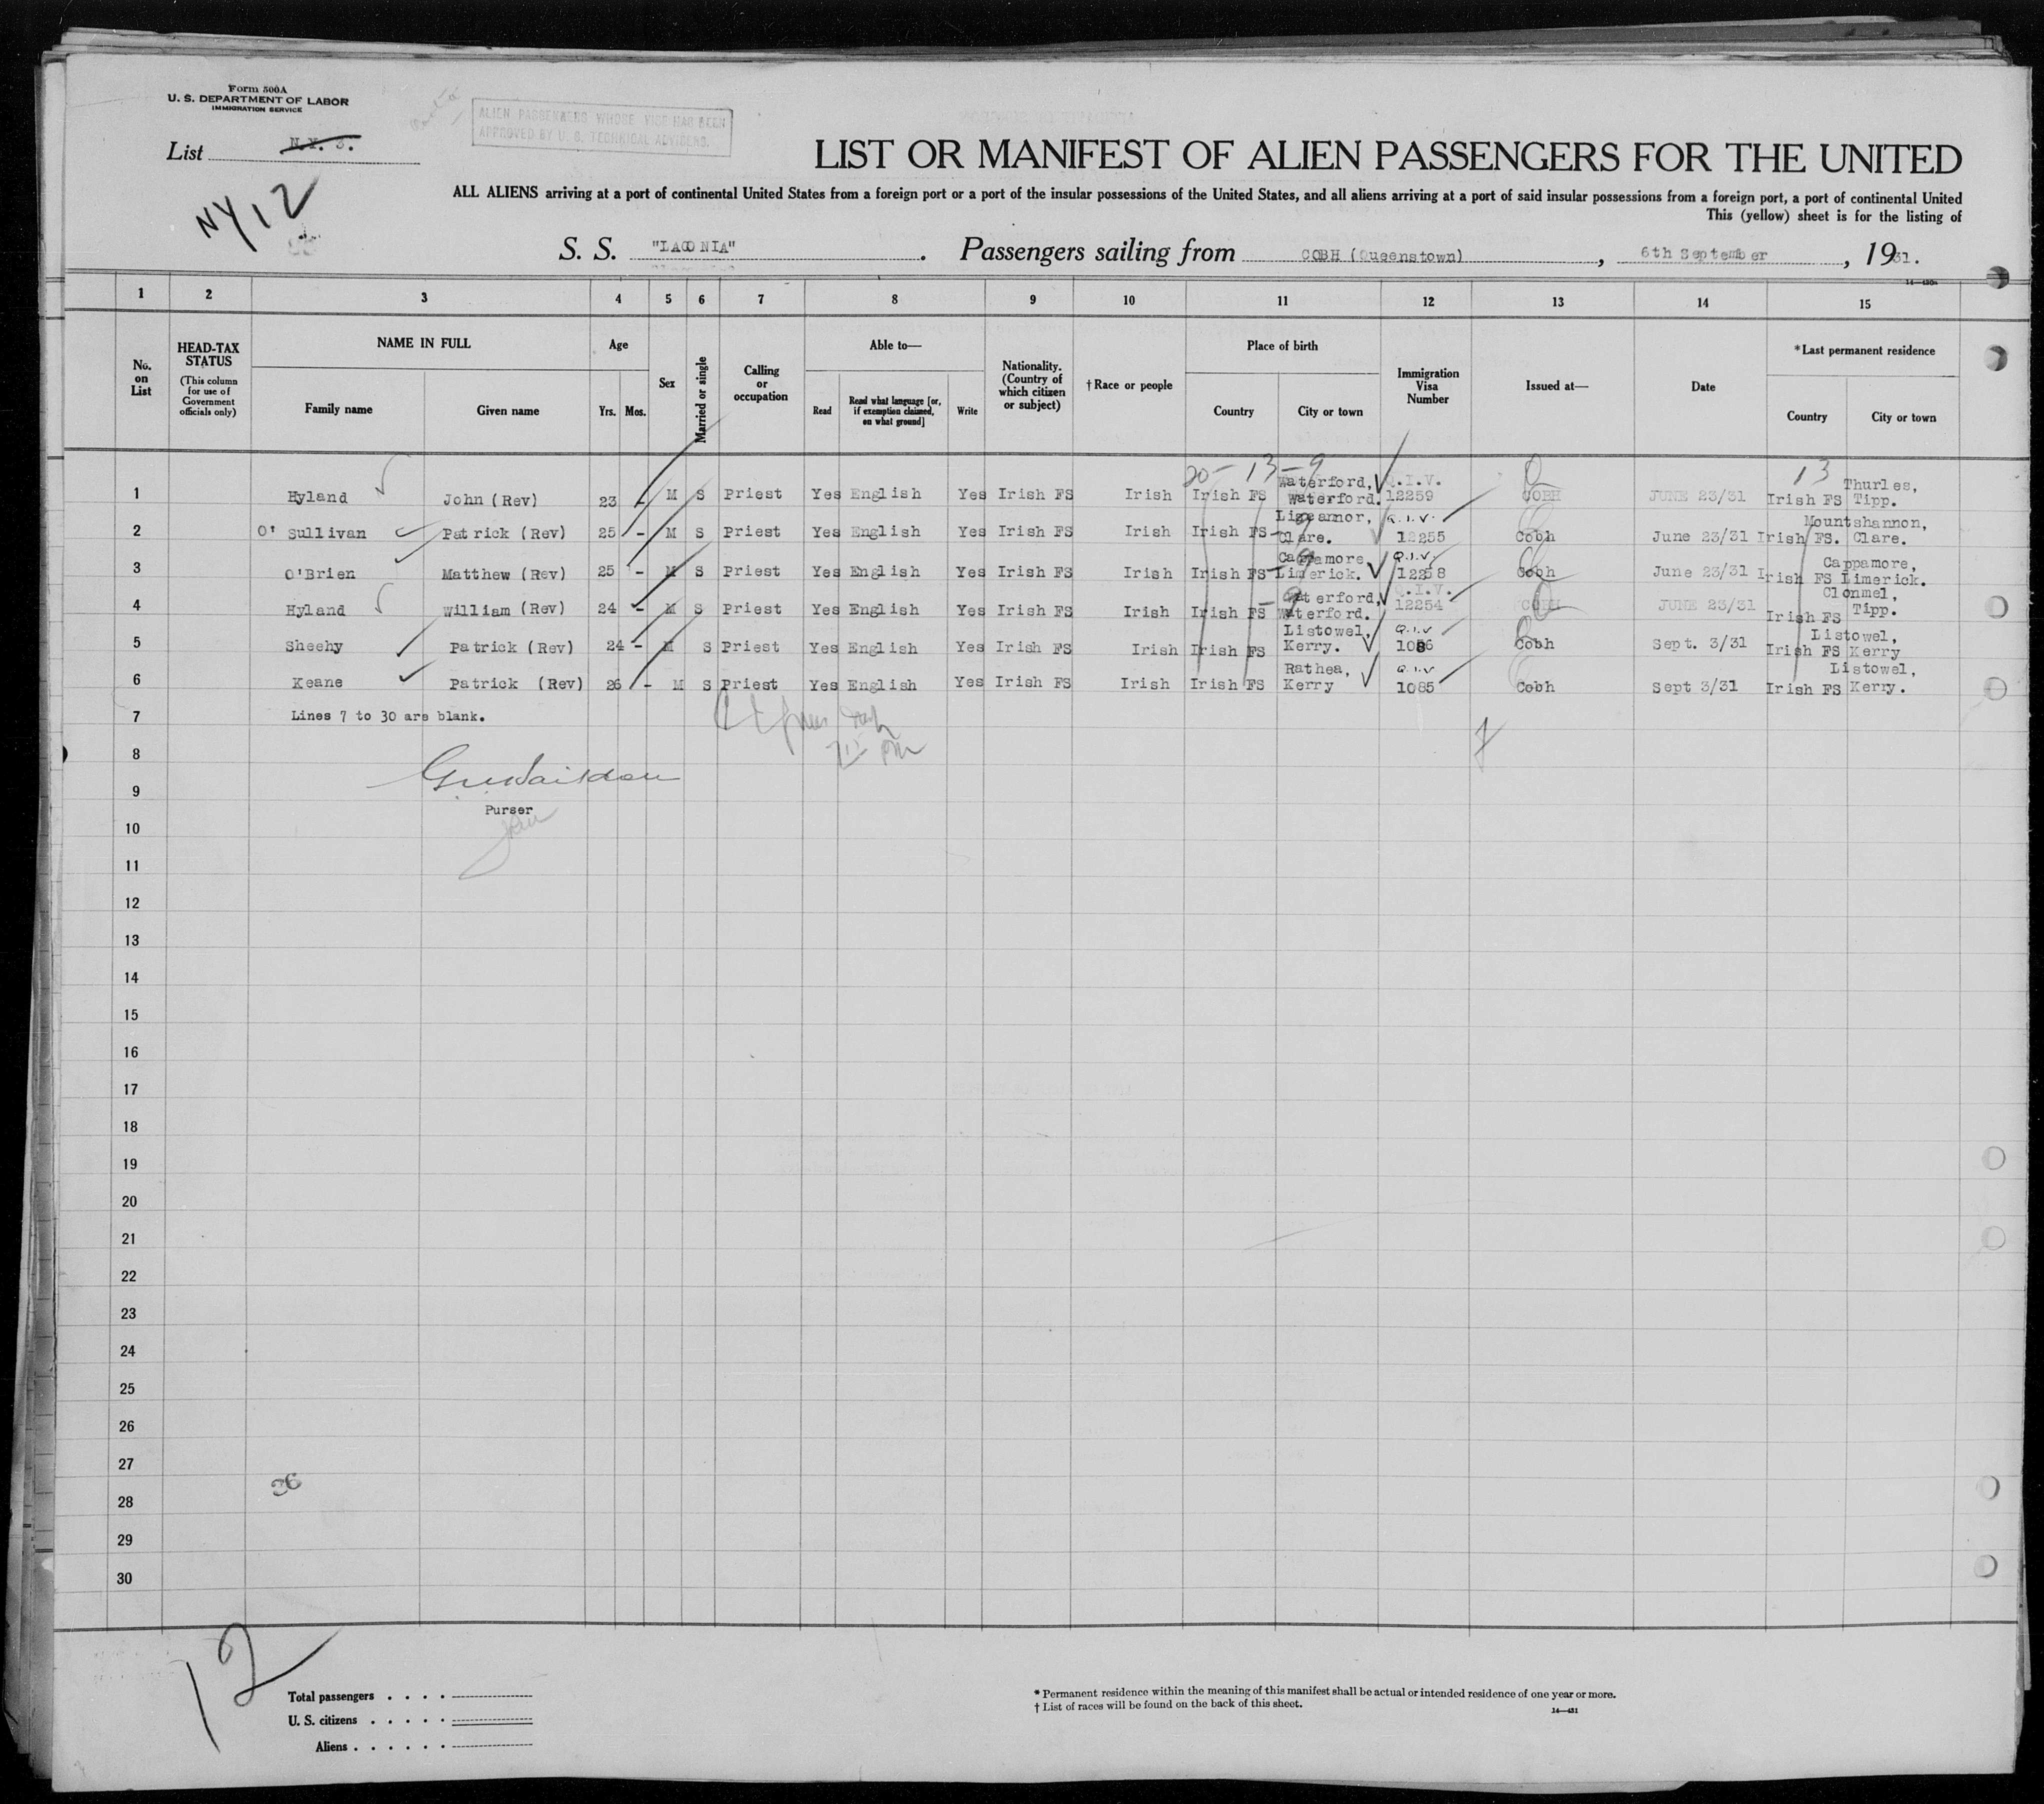 Form 500A
U. S. DEPARTMENT OF LABOR
IMMIGRATION SERVICE
ALIEN PASSENGERS WHOSE VICE HAS BEEN
APPROVED BY U. S. TECHNICAL ADVISERS.
List N.Y. 3.
NY 12
LIST OR MANIFEST OF ALIEN PASSENGERS FOR THE UNITED
ALL ALIENS arriving at a port of continental United States from a foreign port or a port of the insular possessions of the United States, and all aliens arriving at a port of said insular possessions from a foreign port, a port of continental United
This (yellow) sheet is for the listing of
S. S. "LACONIA". Passengers sailing from COBH (Queenstown), 6th September, 1931.
14—430a
1 2 3 4 5 6 7 8 9 10 11 12 13 14 15
No. on List
HEAD-TAX STATUS
(This column for use of Government officials only)
NAME IN FULL
Family name
Given name
Age
Yrs. Mos.
Sex
Married or single
Calling or occupation
Able to—
Read
Read what language [or, if exemption claimed, on what ground]
Write
Nationality. (Country of which citizen or subject)
† Race or people
Place of birth
Country
City or town
Immigration Visa Number
Issued at—
Date
* Last permanent residence
Country
City or town
20 - 13 - 9
13
1 Hyland John (Rev) 23 - M S Priest Yes English Yes Irish FS Irish Irish FS Waterford, Waterford. Q.I.V. 12259 COBH JUNE 23/31 Irish FS Thurles, Tipp.
2 O' Sullivan Patrick (Rev) 25 - M S Priest Yes English Yes Irish FS Irish Irish FS Clare. Q.I.V. 12255 Cobh June 23/31 Irish FS. Mountshannon, Clare.
3 O'Brien Matthew (Rev) 25 - M S Priest Yes English Yes Irish FS Irish Irish FS Cappamore Limerick. Q.I.V. 12258 Cobh June 23/31 Irish FS Cappamore, Limerick.
4 Hyland William (Rev) 24 - M S Priest Yes English Yes Irish FS Irish Irish FS Waterford, Waterford. Q.I.V. 12254 COBH JUNE 23/31 Irish FS Clonmel, Tipp.
5 Sheehy Patrick (Rev) 24 - M S Priest Yes English Yes Irish FS Irish Irish FS Listowel, Kerry. Q.I.V 1086 Cobh Sept. 3/31 Irish FS Listowel, Kerry
6 Keane Patrick (Rev) 26 - M S Priest Yes English Yes Irish FS Irish Irish FS Rathea, Kerry Q.I.V 1085 Cobh Sept 3/31 Irish FS Listowel, Kerry.
7 Lines 7 to 30 are blank.
8
9
Purser
10
11
12
13
14
15
16
17
18
19
20
21
22
23
24
25
26
27
36
28
29
30
12
Total passengers
U. S. citizens
Aliens
* Permanent residence within the meaning of this manifest shall be actual or intended residence of one year or more.
† List of races will be found on the back of this sheet.
14—431